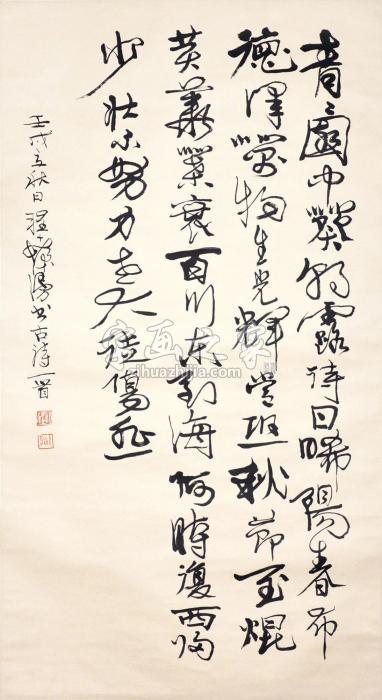 青々園中葵朝露待日晞陽春布
德澤萬物生光輝常恐秋節至焜
黄華葉衰百川東到海何時復西歸
少壯不努力老大徒傷悲
壬戌立秋日程書古詩一首
字画之家
zihuazhijia.com